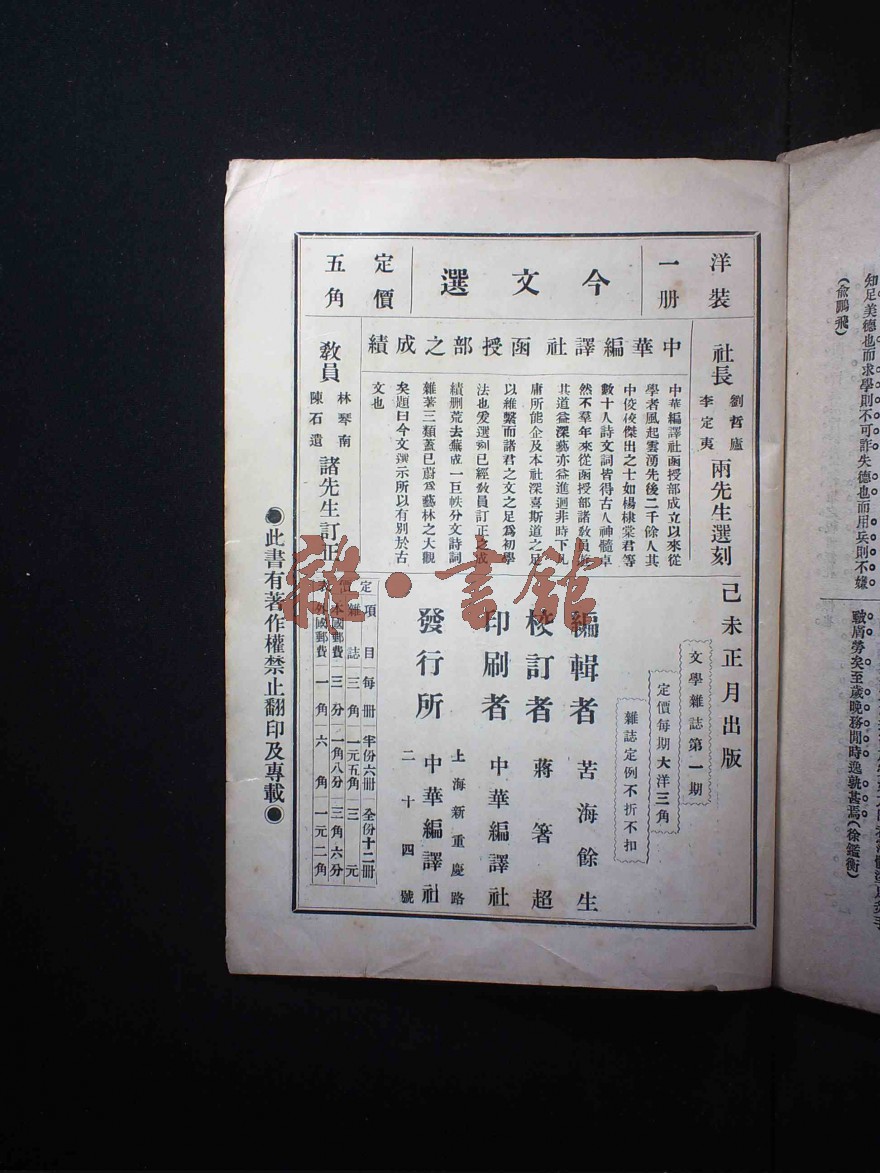 洋裝一册
今文選
定價五角
中華編譯社函授部之成績
社長 劉哲廬 李定夷 兩先生選刻
中華編譯社函授部成立以來從
學者風起雲湧先後二千餘人其
中俊傑出之士如楊棣棠君等
數十人詩文詞皆得古人神髓卓
然不羣年來從函授部諸敎員遊
其道益深藝亦益進迥非時下凡
庸所能企及本社深喜斯道之足
以維繫而諸君之文之足爲初學
法也爰選刻已經敎員訂正之成
績删荒去蕪成一巨帙分文詩詞
雜著三類蓋已蔚爲藝林之大觀
矣題曰今文選示所以有別於古
文也
敎員 林琴南 陳石遺 諸先生訂正
己未正月出版
文學雜誌第一期
定價每期大洋三角
雜誌定例不折不扣
編輯者 苦海餘生
校訂者 蔣箸超
印刷者 中華編譯社
發行所 上海新重慶路 中華編譯社 二十四號
定價表
項目 每册 半份六册 全份十二册
雜誌 三角 一元五角 三元
本國郵費 三分 一角八分 三角六分
外國郵費 一角 六角 一元二角
●此書有著作權禁止翻印及專載●
雜·書館
知足美德也而求學則不可詐失德也而用兵則不嫌
(俞鵬飛)
甚焉(徐鑑衡)